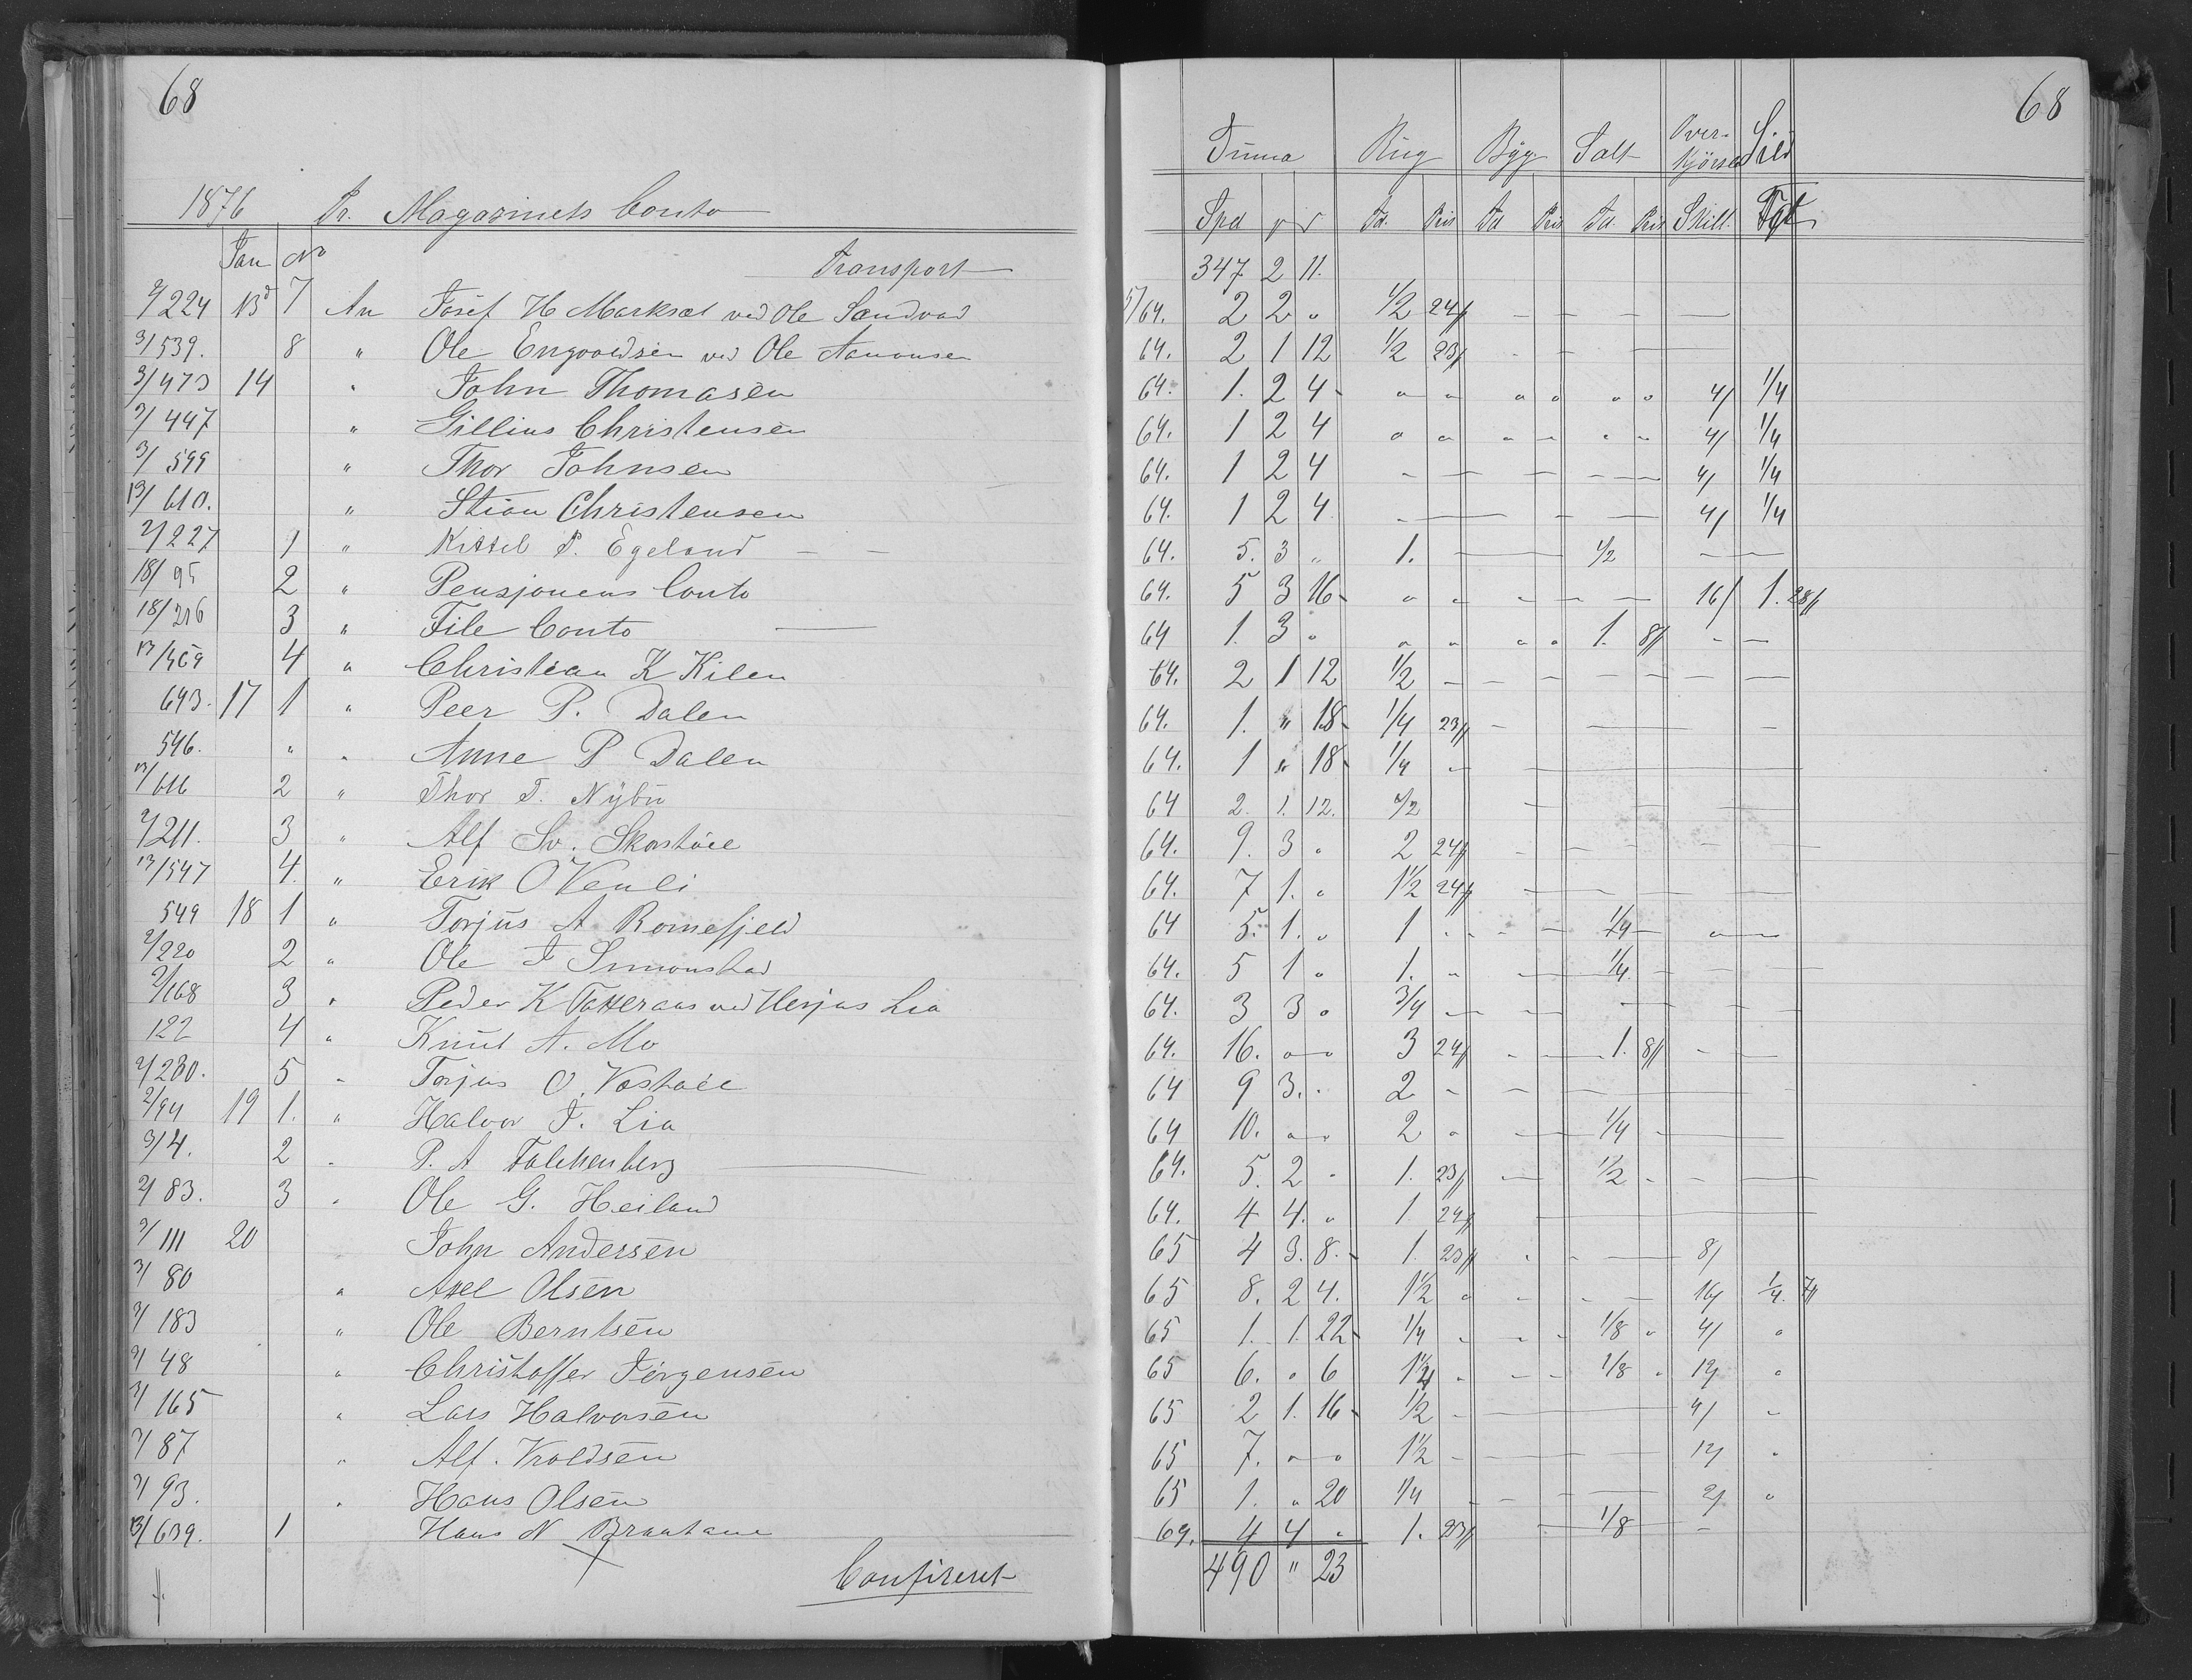 68
68
Summa Rug Byg Salt Over- Sild
kjørsel
1876 Pr. Magazinets Conto Spd Td. Pris Td Pris Td. Pris Skill. Fjt
Jan No Transport 347 2 11.
2/224 13d 7 An Josef H Marksæt ved Ole Sandvad 5/64. 2 2 " 1/2 24/ — — — —
3/539. 8 " Ole Engvoldsen ved Ole Aanonsen 64. 2 1 12 1/2 23/ - — —
3/473 14 " John Thomasen 64. 1. 2 4 - " " " " " " 4/ 1/4
2/447 " Gillius Christensen 64. 1 2 4 " " " " " " 4/ 1/4
3/599 " Thor Johnsen 64. 1 2 4 - — — — — 4/ 1/4
13/610. " Stian Christensen 64. 1 2 4 - — — — 4/ 1/4
2/227 1 " Kittel P. Egeland — — 64. 5. 3 " 1. — 1/2 —
18/95 2 " Pensjonens Conto 64. 5 3 16 - " " - — — 16/ 1. 28/
18/206 3 " File Conto — 64 1. 3 " " " " " 1. 8/ - —
13/469 4 " Christian K Kilen 64. 2 1 12 1/2 — — — — — — —
643. 17 1 " Peer P. Dalen 64. 1. " 18 - 1/4 23/ - — —
546. " " Anne P Dalen 64. 1 " 18 - 1/4 — —
13/616 2 " Thor T. Nybu 64 2. 1. 12. 1/2 — — —
2/211. 3 " Alf Sv. Skorstøil 64. 9. 3 " 2 24/ - — - — — —
13/547 4. " Erik O Venli 64. 7 1. " 1 1/2 24/ — — —
549 18 1 " Torjus A Romefjeld 64 5. 1. " 1 - - - — 1/4 — " —
2/220 2 " Ole T Simonstad 64. 5 1 " 1. " — 1/4. — — —
2/168 3 " Peder K Tatteraas ved Herjus Lia 64. 3 3 " 3/4 — — — — —
122 4 " Knut A. Mo 64. 16. " " 3 24/ - — 1. 8/ - —
2/230. 5 - Torjus O. Vostøil 64 9 3. " 2 - — —
2/94 19 1. " Halvor T. Lia 64 10. " " 2 " — 1/4 - —
3/4. 2 - P. A Falchenberg — 64. 5. 2 - 1. 23/ — 1/2 - - —
2/83. 3 " Ole G. Heiland 64. 4 4. " 1 24/ —
2/111 20 John Andersen 65 4 3. 8. - 1. 23/ - - — 8/
3/80 " Axel Olsen 65 8. 2 4. 1 1/2 " - - — 16/ 1/4. 7/
2/183 " Ole Berntsen 65 1. 1. 22 - 1/4 - - - 1/8 " 4/ "
2/48 " Christoffer Jörgensen 65 6. " 6 1 1/4 - - - 1/8 " 12/ "
2/165 " Lars Halvorsen 65 2 1. 16 - 1/2 - — 4/ -
2/87 " Alf. Kroldsen 65 7. " " 1 1/2 - — — 12/ "
2/93. " Hans Olsen 65 1. " 20 1/4 - - — 2/ "
13/639. 1 Hans N Braatane 64. 4 4 " 1. 23/ — 1/8 —
Confireret 490 " 23